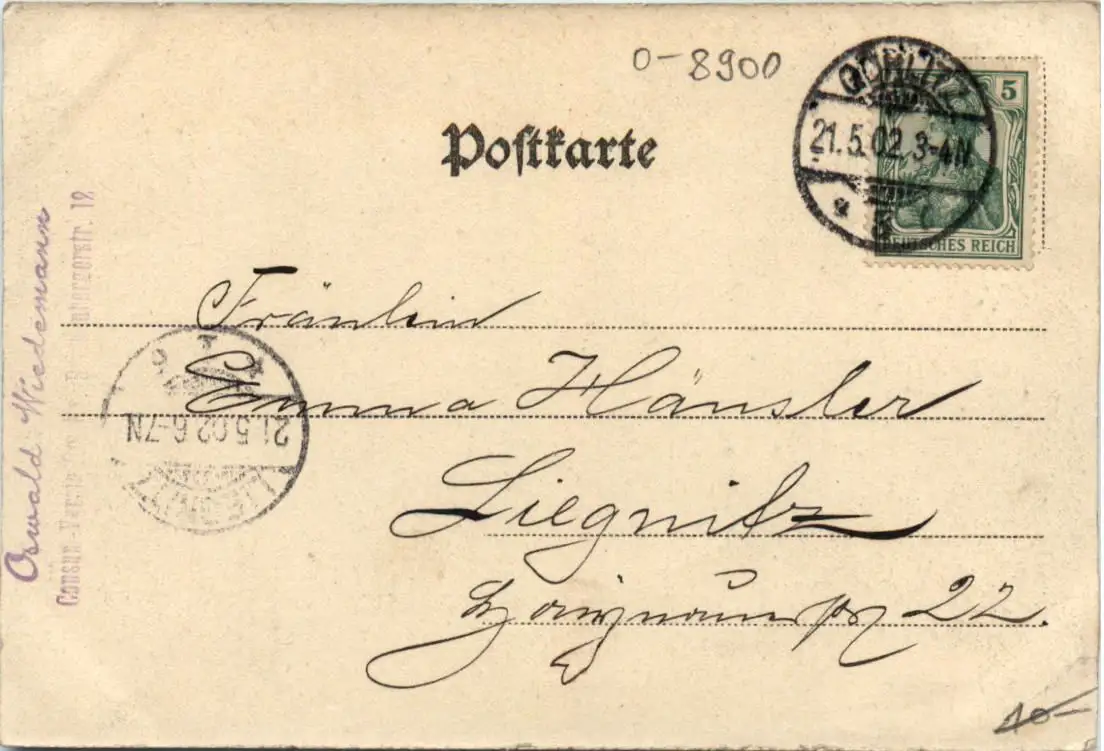 0-8900
Postkarte
GÖRLITZ
21.5.02. 3-4N
5
DEUTSCHES REICH
Fräulein
Emma Hänsler
Liegnitz
22.
Oswald Wiedemann
Consum-Verein
str. 12
LIEGNITZ
21.5.02.6-7N
10-